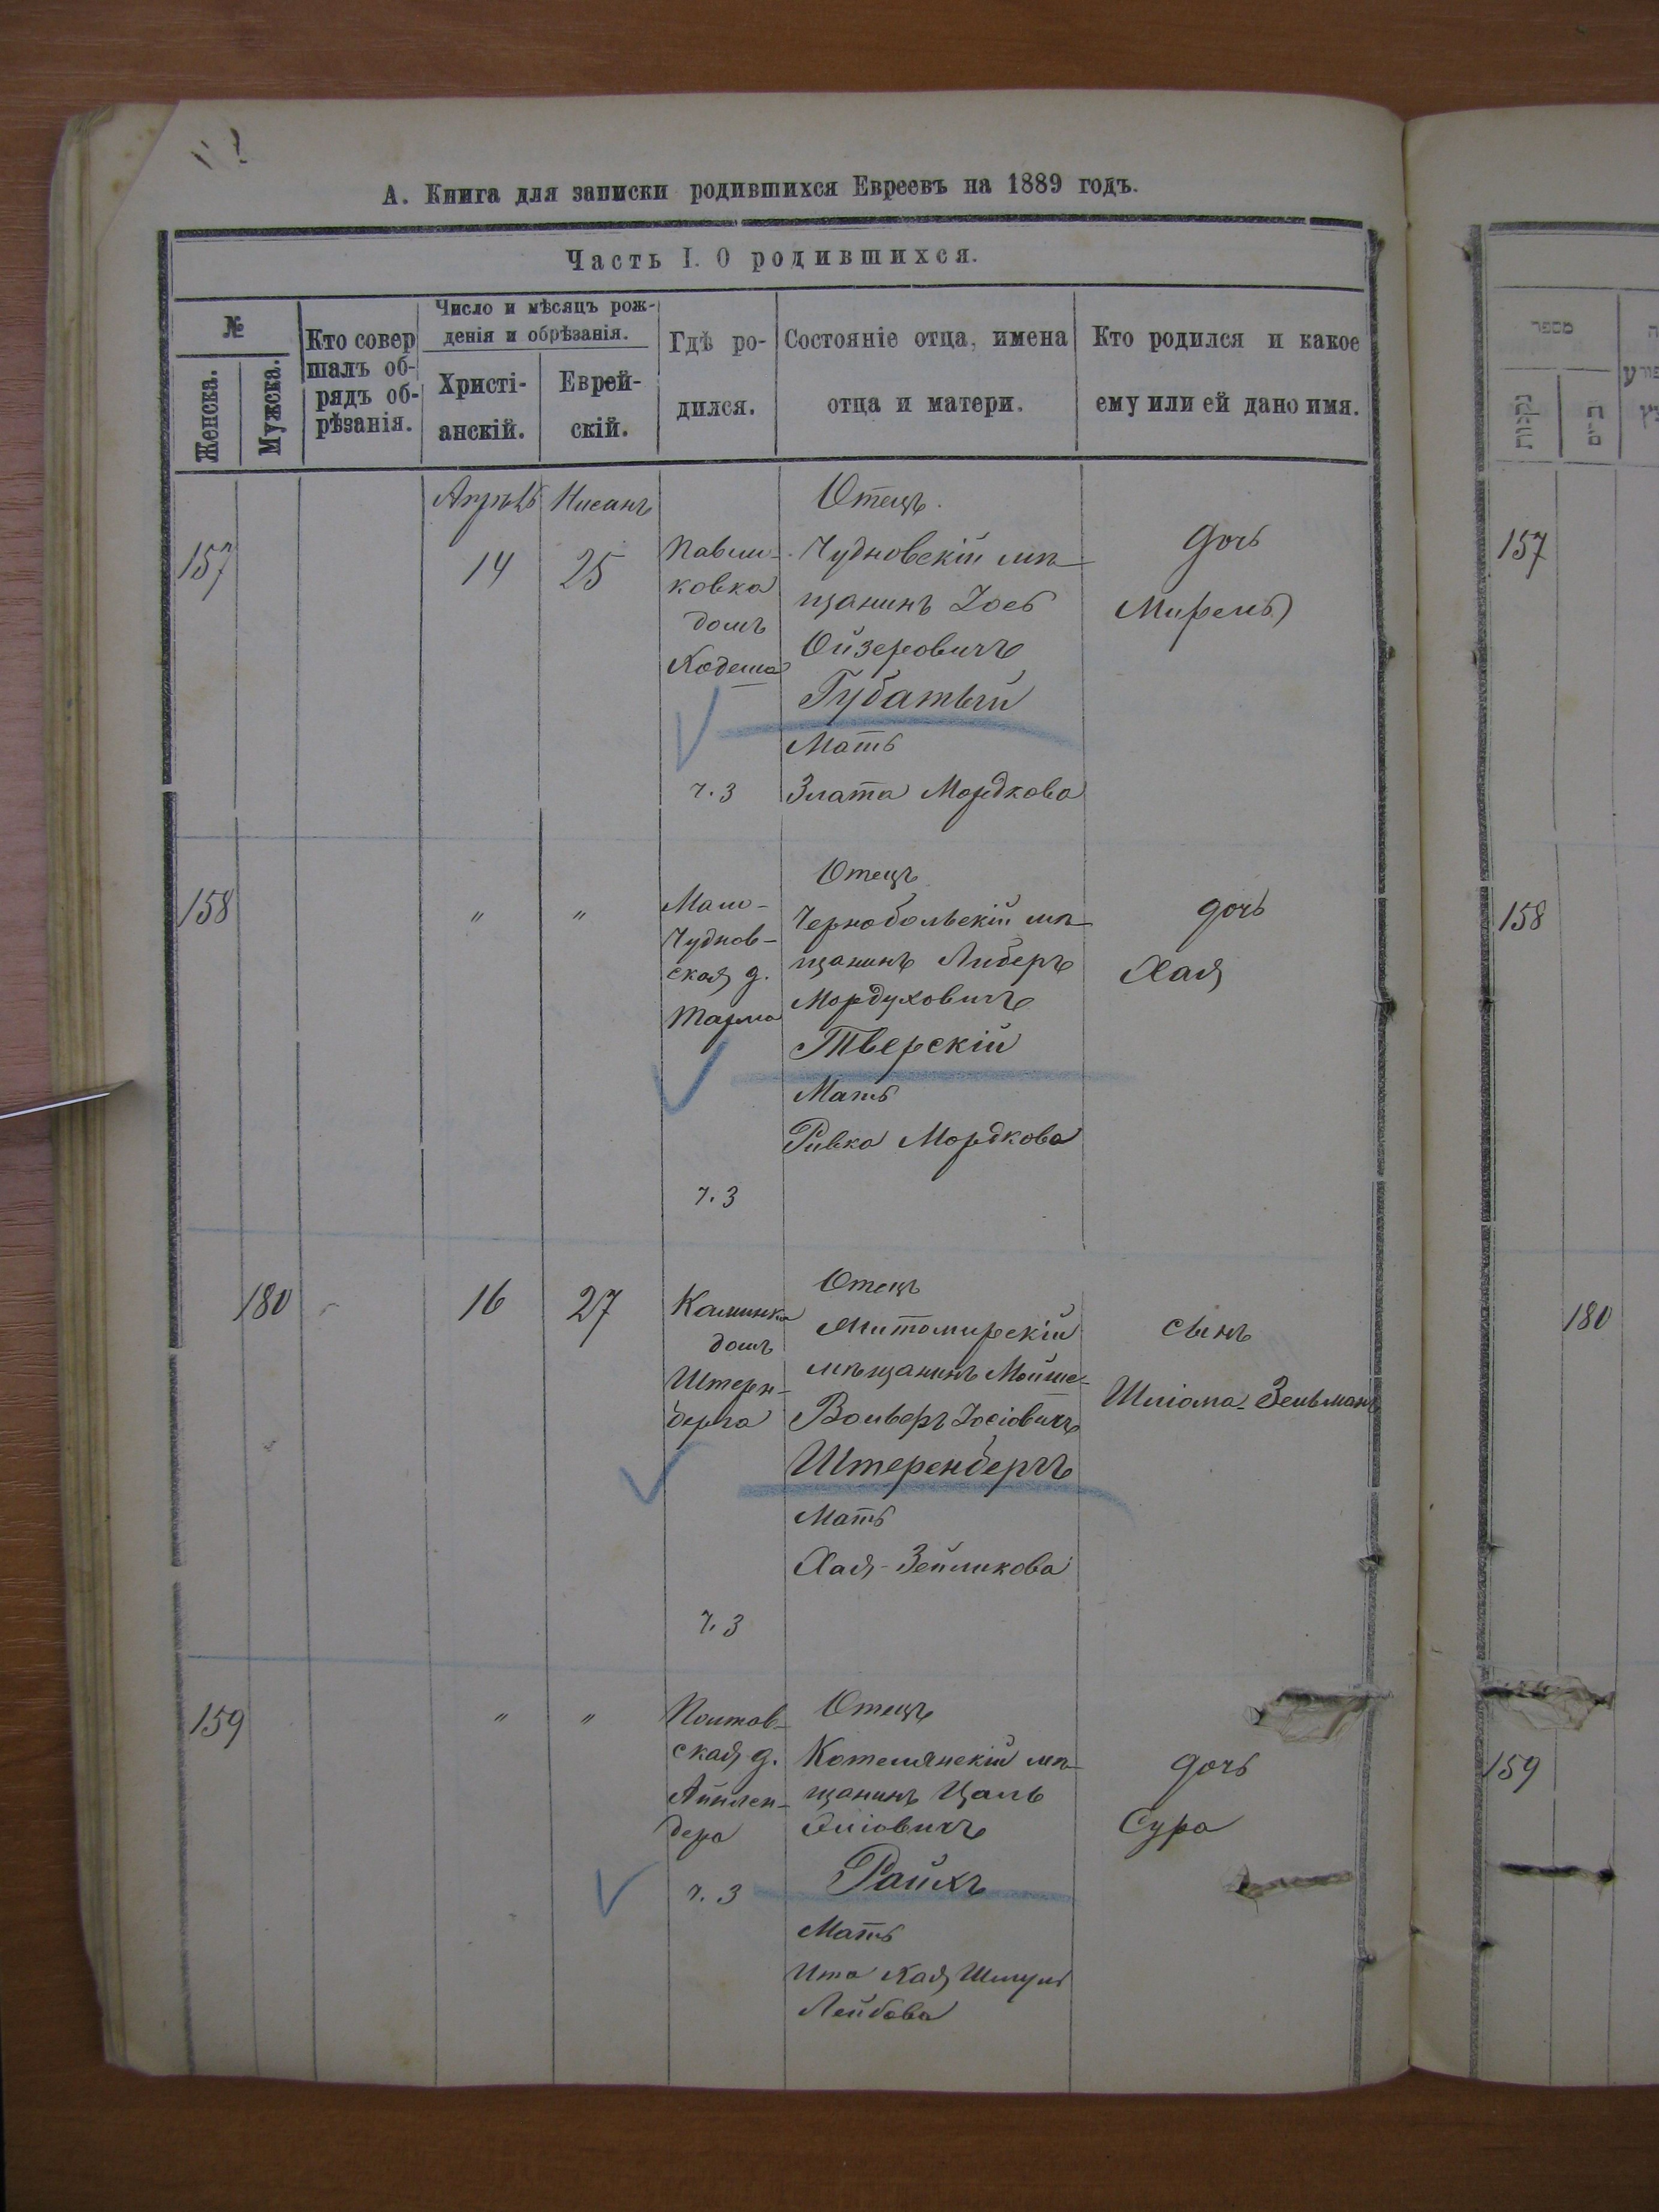 А. Книга для записки родившихся Евреевъ на 1889 годъ.
Часть I. О родившихся.
№
Женска.
Мужска.
Кто совер
шалъ об-
рядъ об-
рѣзанія.
Число и мѣсяцъ рож-
денія и обрѣзанія.
Христі-
анскій.
Еврей-
скій.
Гдѣ ро-
дился.
Состояніе отца, имена
отца и матери.
Кто родился и какое
ему или ей дано имя.
157
Апрѣль
14
Нисанъ
25
Павли-
ковка
домъ
Кодеша
ч. 3
Отецъ.
Чудновскій мѣ-
щанинъ Іось
Ойзеровичъ
Губатый
Мать
Злата Мордкова
дочь
Мирель
158
"
"
Мало-
Чуднов-
ская д.
ч. 3
Отецъ
Чернобольскій мѣ-
щанинъ Либеръ
Мордуховичъ
Тверскій
Мать
Ривка Мордкова
дочь
Хая
180
16
27
Каминка
домъ
Штерен-
берга
ч. 3
Отецъ
Житомирскій
мѣщанинъ Мойше-
Вольфъ Іосіовичъ
Штеренбергъ
Мать
Хая-Зейликова
сынъ
Шліома-Зельманъ
159
"
"
Полтав-
ская д.
ч. 3
Отецъ
Котелянскій мѣ-
щанинъ Цаль
Эліовичъ
Райхъ
Мать
Ита Хая Шмуль
Лейбова
дочь
Сура
157
158
180
159
מספר